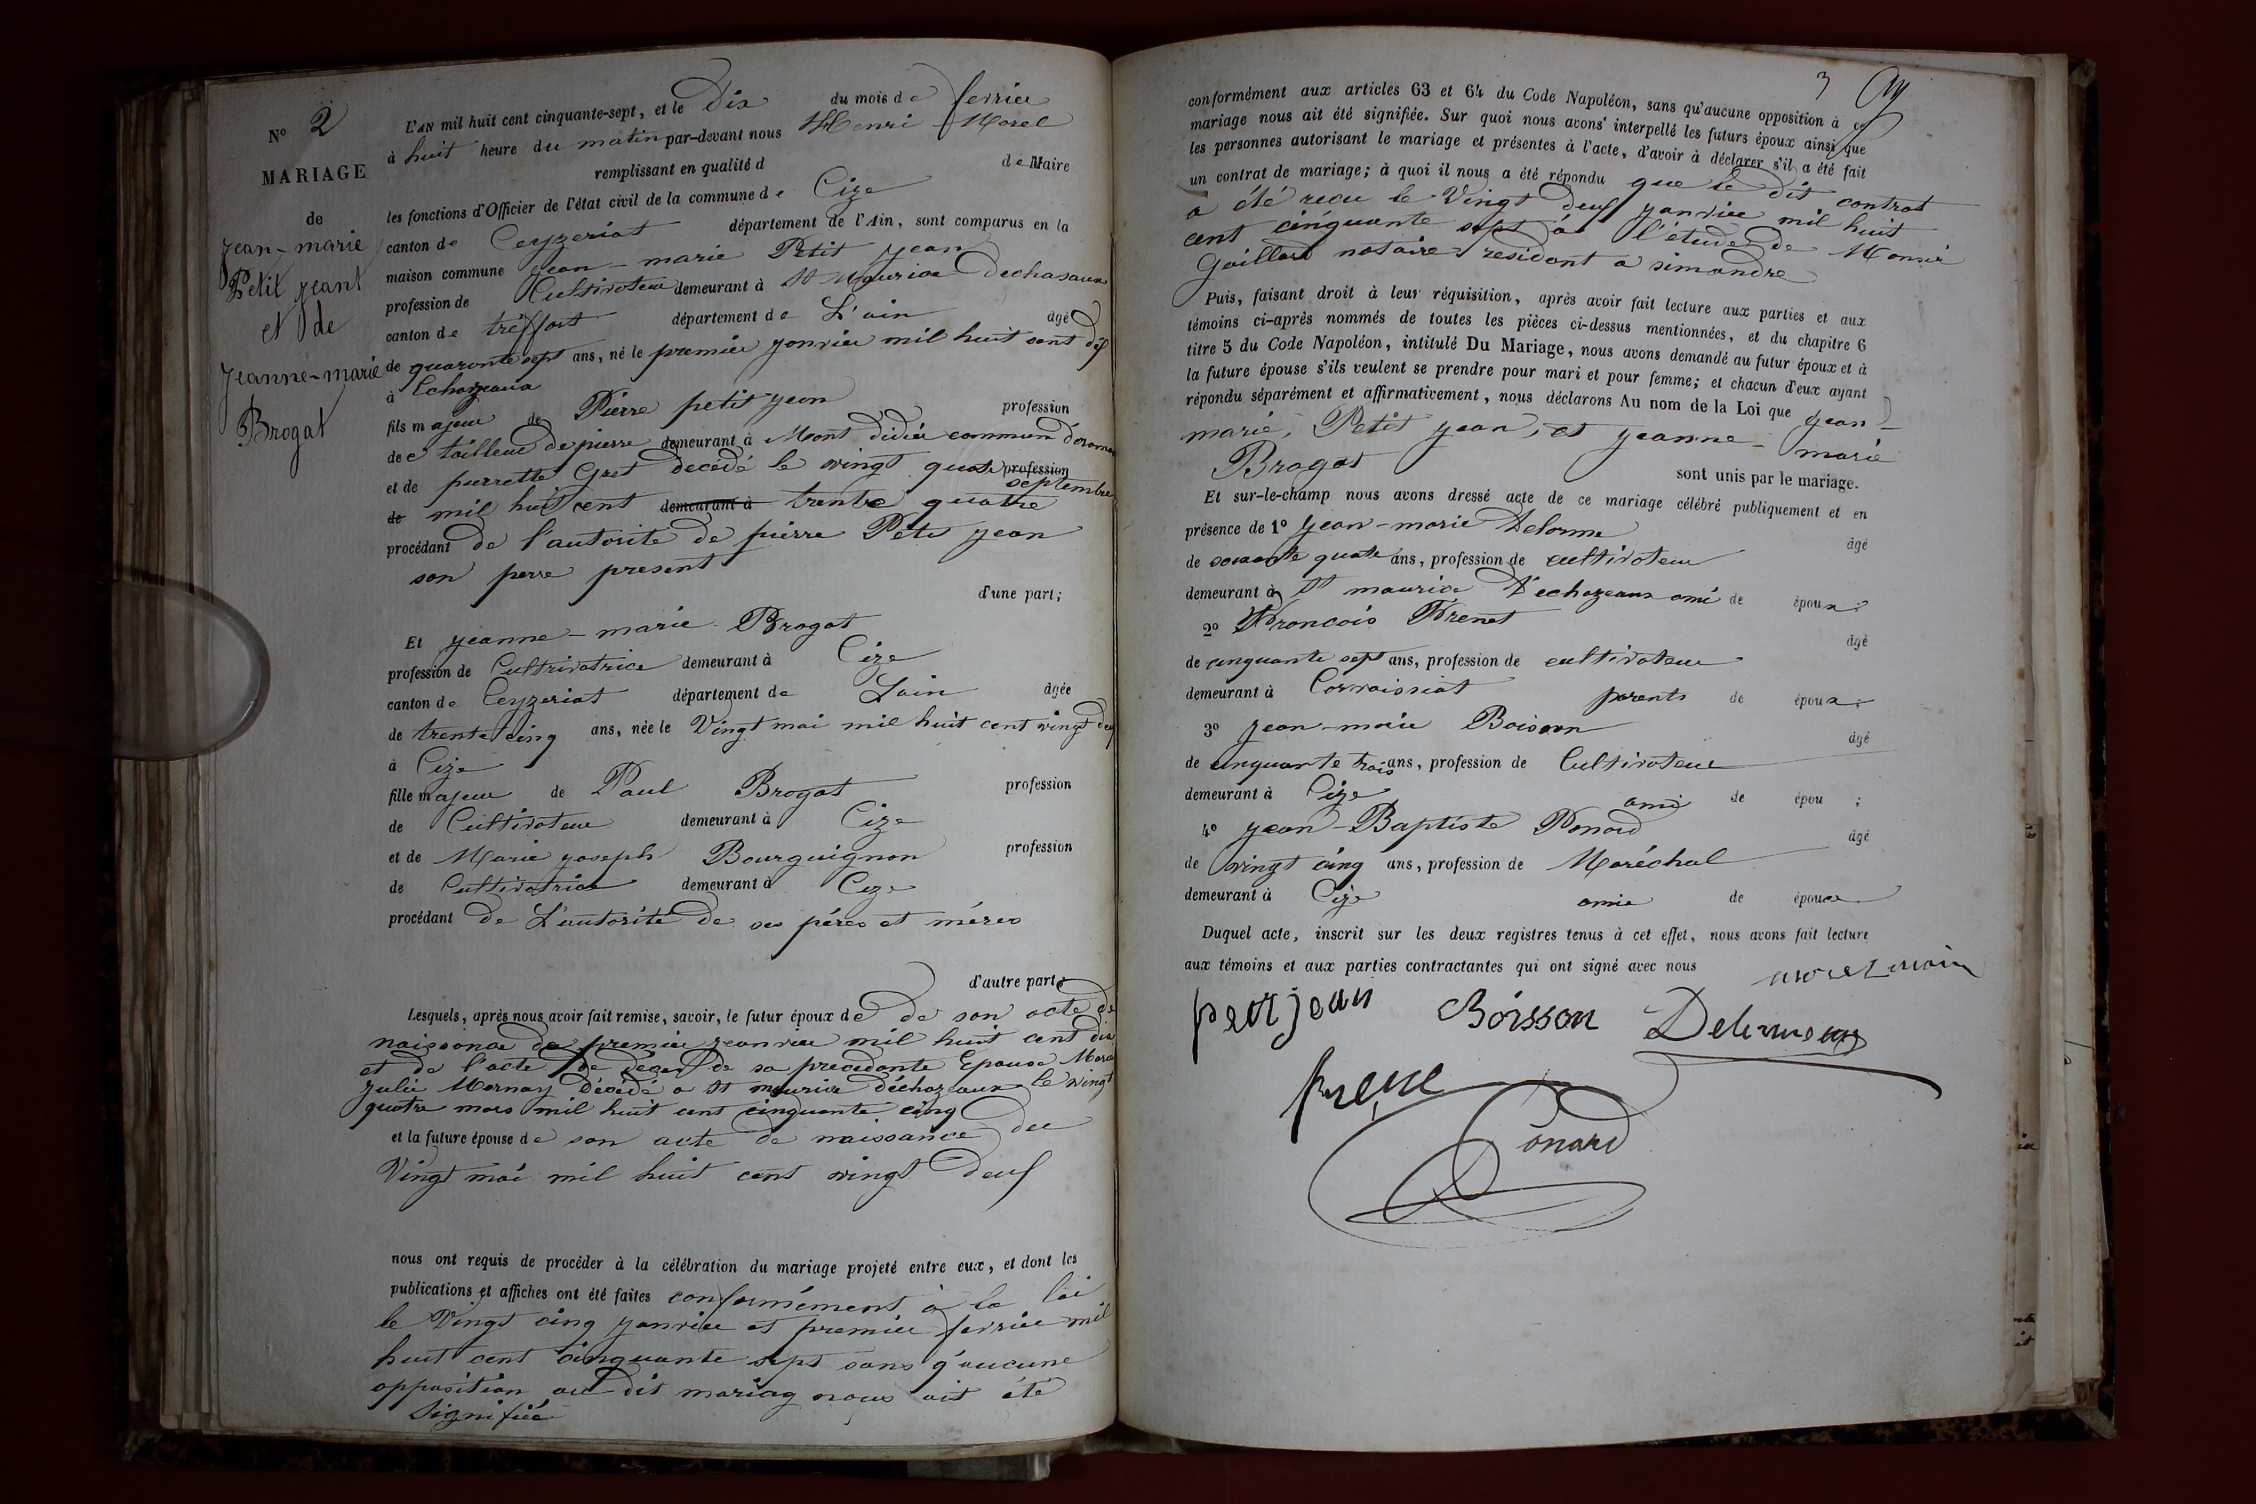 N° 2
MARIAGE
de
jean-marie
Petit jeant
et de
jeanne-marie
Brogat
L'AN mil huit cent cinquante-sept, et le Dix du mois de ferrier
à huit heure du matin par-devant nous Henri Morel
remplissant en qualité d de Maire
les fonctions d'Officier de l'état civil de la commune de Cize
canton de Ceyzeriat département de l'Ain, sont comparus en la
maison commune jean-marie Petit jean
profession de Cultivateur demeurant à St Maurice Dechasaux
canton de treffort département de L'ain âgé
de quarante sept ans, né le premier janvier mil huit sent dis
à Echazeaux
fils majeur de Pierre petit jean profession
de tailleur de pierre demeurant à Mont didier commun
et de pierrette Gret decédé le vingt quatre profession septembre
de mil huit cent demeurant à trente quatre
procédant de l'autorite de pierre Petit jean
son perre present
d'une part;
Et jeanne-marie Brogat
profession de Cultrivatrice demeurant à Cize
canton de Ceyzeriat département de Lain âgée
de trente cinq ans, née le Vingt mai mil huit cent vingt deuf
à Cize
fille majeur de Paul Brogat profession
de Cultivateur demeurant à Cize
et de Marie joseph Bourguignon profession
de Cultivatrice demeurant à Cize
procédant de L'autorité de ses péres et méres
d'autre part
Lesquels, après nous avoir fait remise, savoir, le futur époux de de son acte de
naissance du premier jeanvier mil huit cent dix
et de l'acte de deces de sa precedante Epouse Marie
julie Mornay Décédé a St maurice déchazeaux le vingt
quatre mars mil huit cent cinquante cinq
et la future épouse de son acte de naissance du
Vingt mai mil huit cent vingt deuf
nous ont requis de procéder à la célébration du mariage projeté entre eux, et dont les
publications et affiches ont été faites conformément à la loi
le Vingt cinq janvier et premier ferrier mil
huit cent cinquante sept sans q'aucune
opposition au dit mariag nous ait été
Signifiée
3
conformément aux articles 63 et 64 du Code Napoléon, sans qu'aucune opposition à ce
mariage nous ait été signifiée. Sur quoi nous avons interpellé les futurs époux ainsi que
les personnes autorisant le mariage et présentes à l'acte, d'avoir à déclarer s'il a été fait
un contrat de mariage; à quoi il nous a été répondu que le dit contrat
a été reçu le Vingt deuf janvier mil huit
cent cinquante sept à l'étude de Monsir
Gaillard notaire residant a simandre
Puis, faisant droit à leur réquisition, après avoir fait lecture aux parties et aux
témoins ci-après nommés de toutes les pièces ci-dessus mentionnées, et du chapitre 6
titre 5 du Code Napoléon, intitulé Du Mariage, nous avons demandé au futur époux et à
la future épouse s'ils veulent se prendre pour mari et pour femme; et chacun d'eux ayant
répondu séparément et affirmativement, nous déclarons Au nom de la Loi que jean-
marie, Petit jean, et jeanne-marie
Brogat sont unis par le mariage.
Et sur-le-champ nous avons dressé acte de ce mariage célébré publiquement et en
présence de 1° jean-marie Delorme âgé
de soixante quatre ans, profession de cultivateur
demeurant à St maurice Dechazeaux ami de époux;
2° Francois Frenet âgé
de cinquante sept ans, profession de cultivateur
demeurant à Corvaissiat parents de époux;
3° jean-marie Boisson âgé
de cinquante trois ans, profession de Cultivateur
demeurant à Cize ami de épou ;
4° jean-Baptiste Ponard âgé
de vingt cinq ans, profession de Maréchal
demeurant à Cize amie de épouse
Duquel acte, inscrit sur les deux registres tenus à cet effet, nous avons fait lecture
aux témoins et aux parties contractantes qui ont signé avec nous morel maire
petitjean Boisson
Ponard